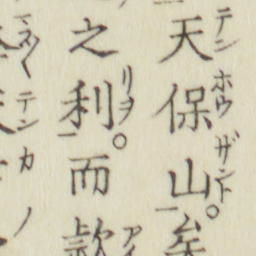 天保山。
テンホウザント
之利。而
リヲ
テンカノ